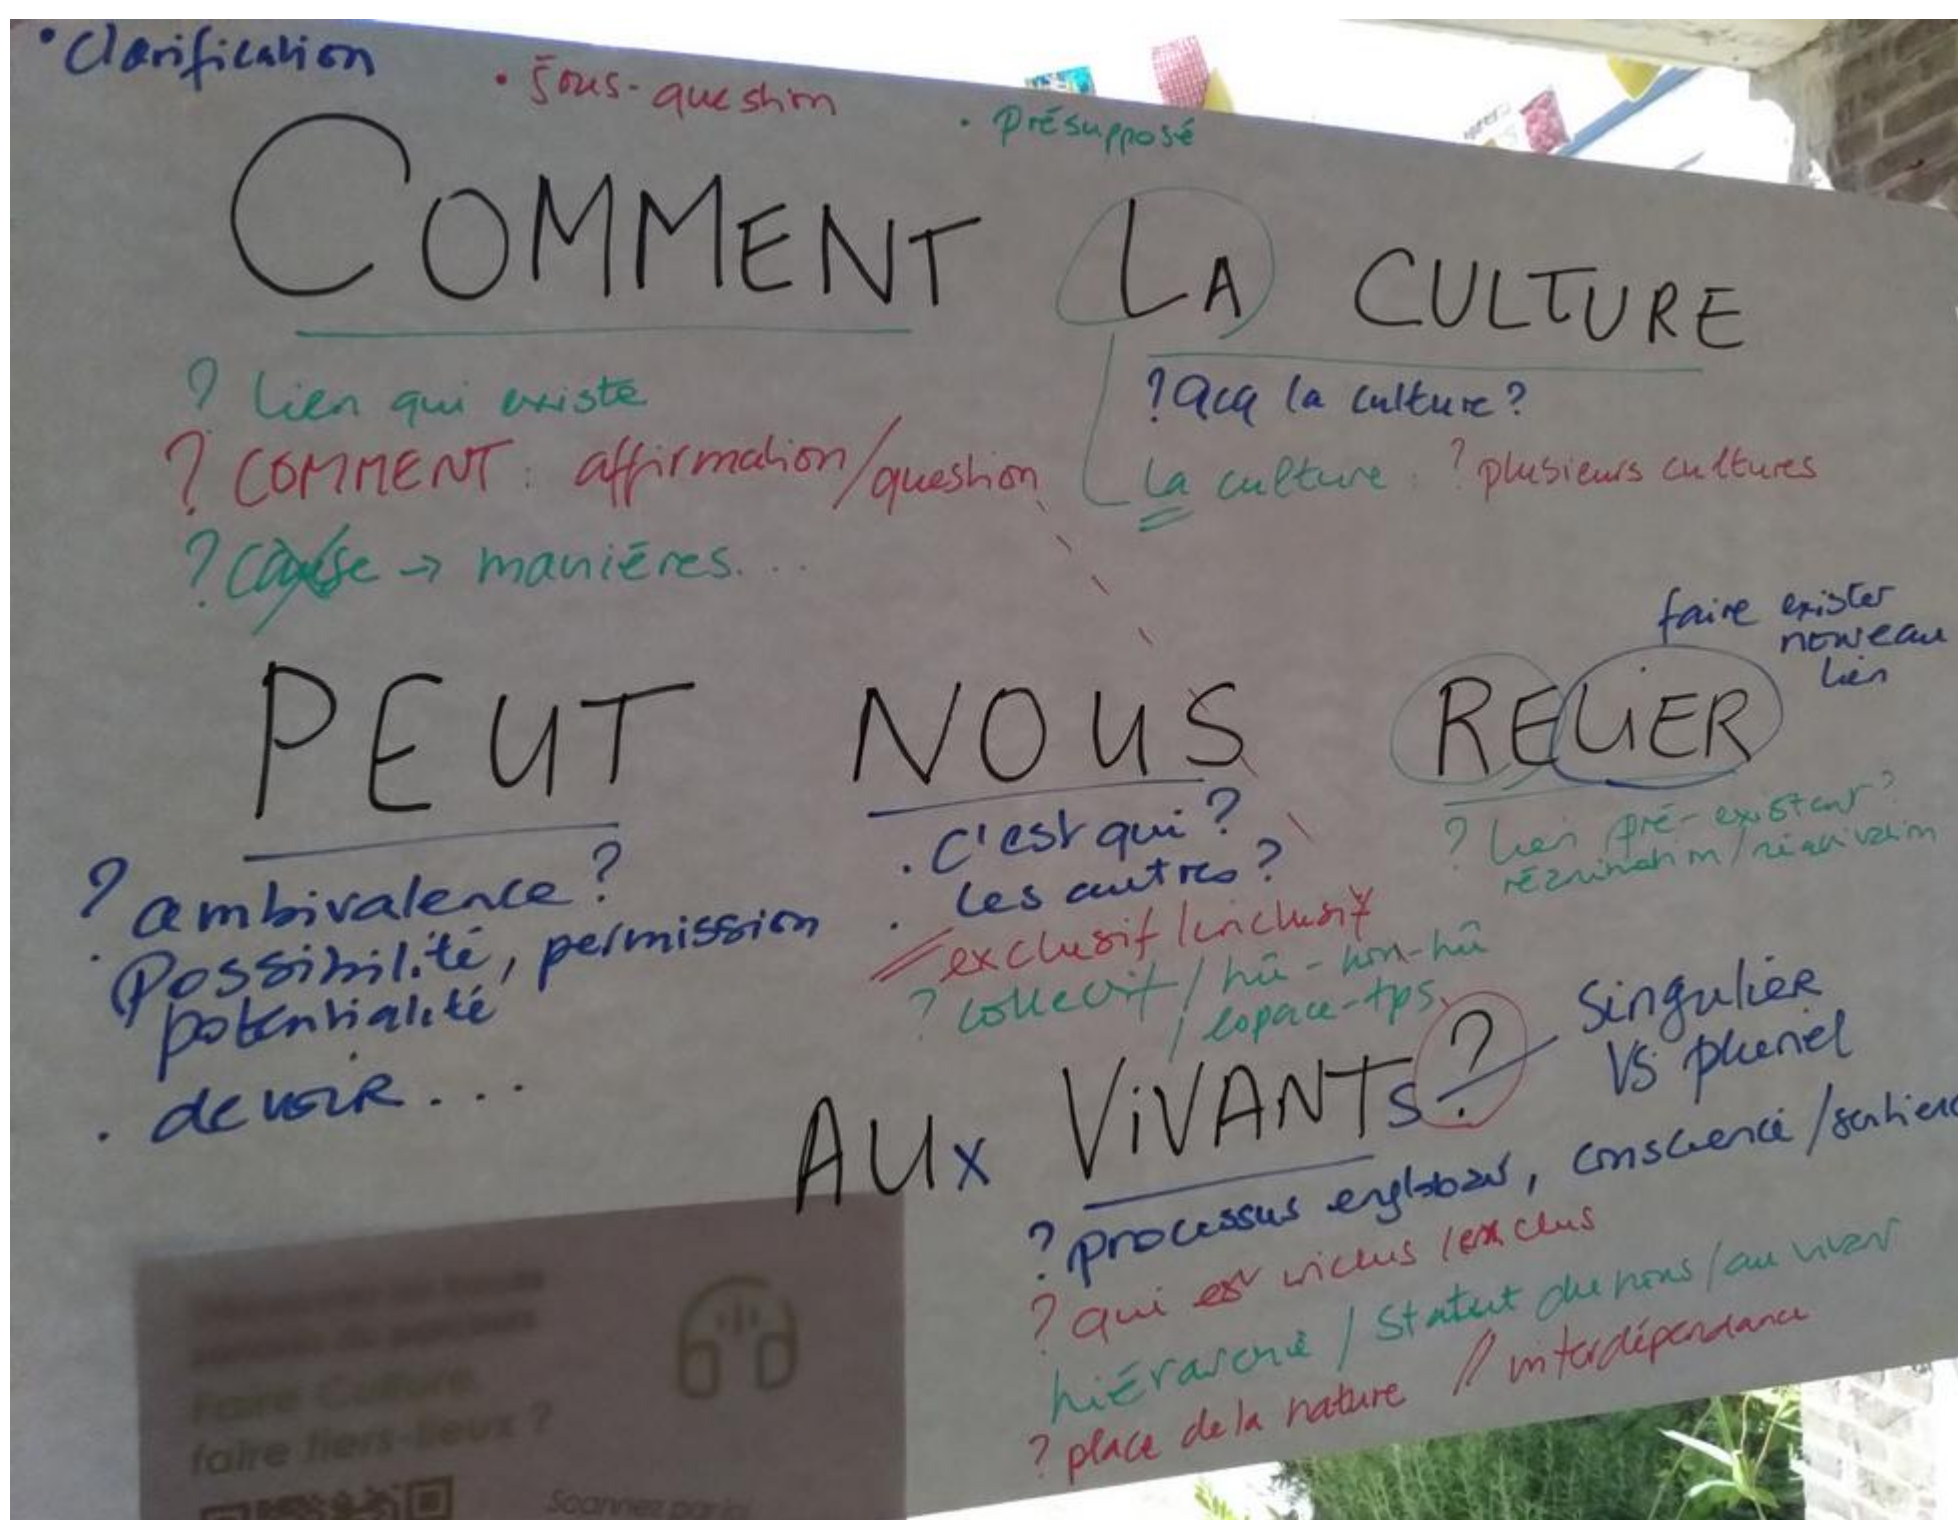 • Clarification
• Sous-question
• Présupposé
COMMENT LA CULTURE
? lien qui existe
? COMMENT : affirmation/question
? cause → manières...
? acq la culture ?
la culture : ? plusieurs cultures
faire exister
nouveau
lien
PEUT NOUS RELIER
? ambivalence ?
. Possibilité, permission
potentialité
. devoir...
. c'est qui ?
. les autres ?
exclusif/inclusif
? collectif / hū - non-hū
/ espace-tps
? lien pré-existant ?
/réactivation
AUx ViVANTs ?
Singulier
VS pluriel
? processus englobant, conscience /
? qui est inclus /exclus
hiérarchie / Statut du nous / au vivant
? place de la nature // interdépendance
Faire Culture,
faire tiers-lieux ?
Scannez par ici